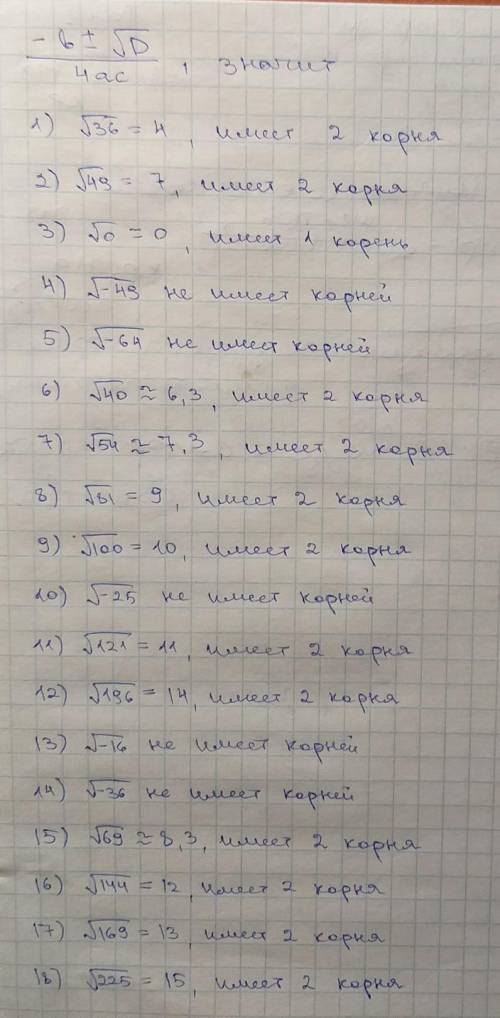 -b ± √D
4ac , значит
1) √36 = 4 , имеет 2 корня
2) √49 = 7, имеет 2 корня
3) √0 = 0 , имеет 1 корень
4) √-49 не имеет корней
5) √-64 не имеет корней
6) √40 ≈ 6,3 , имеет 2 корня
7) √54 ≈ 7,3 , имеет 2 корня
8) √81 = 9 , имеет 2 корня
9) √100 = 10, имеет 2 корня
10) √-25 не имеет корней
11) √121 = 11, имеет 2 корня
12) √196 = 14, имеет 2 корня
13) √-16 не имеет корней
14) √-36 не имеет корней
15) √69 ≈ 8,3, имеет 2 корня
16) √144 = 12, имеет 2 корня
17) √169 = 13, имеет 2 корня
18) √225 = 15, имеет 2 корня